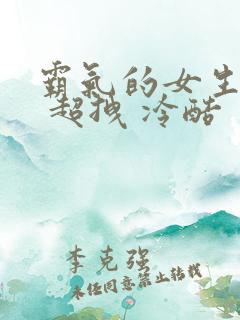 霸氣的女生
超拽 冷酷
李克强
未任同意禁止轉載